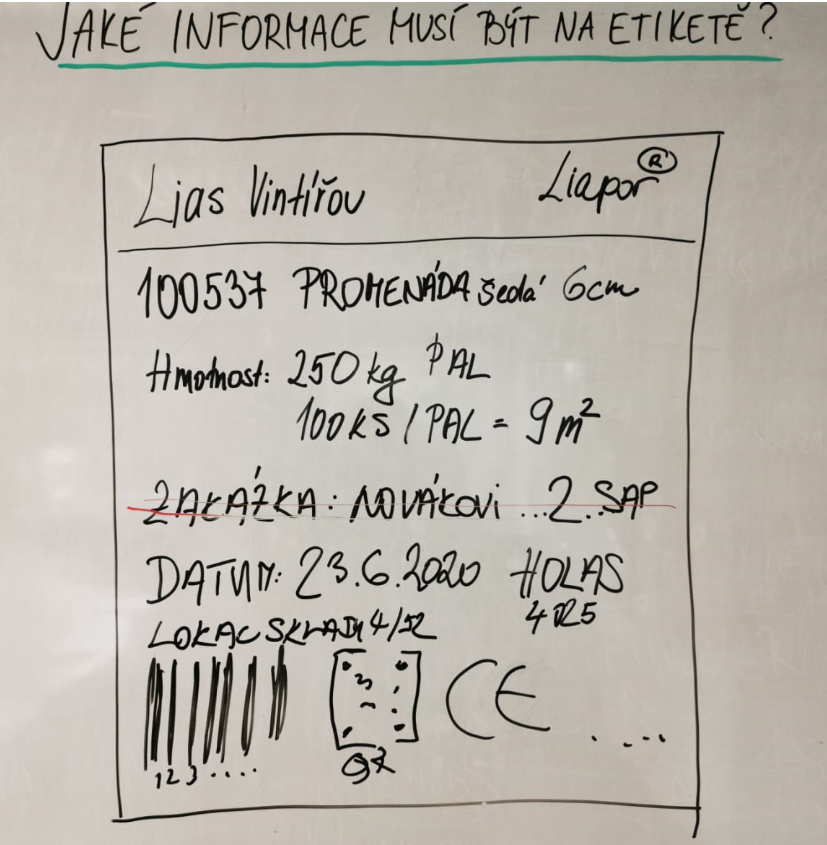 JAKÉ INFORMACE MUSÍ BÝT NA ETIKETĚ?
Lias Vintířov Liapor®
100537 PROMENÁDA šedá 6cm
Hmotnost: 250 kg PAL
100 KS / PAL = 9 m²
ZAKÁZKA: NOVÁKOVI ...2.. SAP
DATUM: 23.6.2020 HOLAS
LOKAC SKLADU 4/52
CE ....
123....
QR